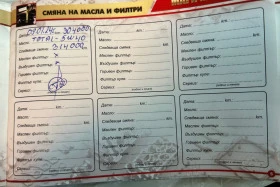 СМЯНА НА МАСЛА И ФИЛТРИ
Дата: km: 304000
Масло: TOTAL - 5W40
Следваща смяна: 314000
Маслен филтър: x
Въздушен филтър:
Горивен филтър:
Филтър купе:
Сервиз:
Дата: km:
Масло:
Следваща смяна:
Маслен филтър:
Въздушен филтър:
Горивен филтър:
Филтър купе:
Сервиз:
Дата: km:
Масло:
Следваща смяна:
Маслен филтър:
Въздушен филтър:
Горивен филтър:
Филтър купе:
Сервиз:
Дата: km:
Масло:
Следваща смяна:
Маслен филтър:
Въздушен филтър:
Горивен филтър:
Филтър купе:
Сервиз:
Дата: km:
Масло:
Следваща смяна:
Маслен филтър:
Въздушен филтър:
Горивен филтър:
Филтър купе:
Сервиз:
Дата: km:
Масло:
Следваща смяна:
Маслен филтър:
Въздушен филтър:
Горивен филтър:
Филтър купе:
Сервиз: